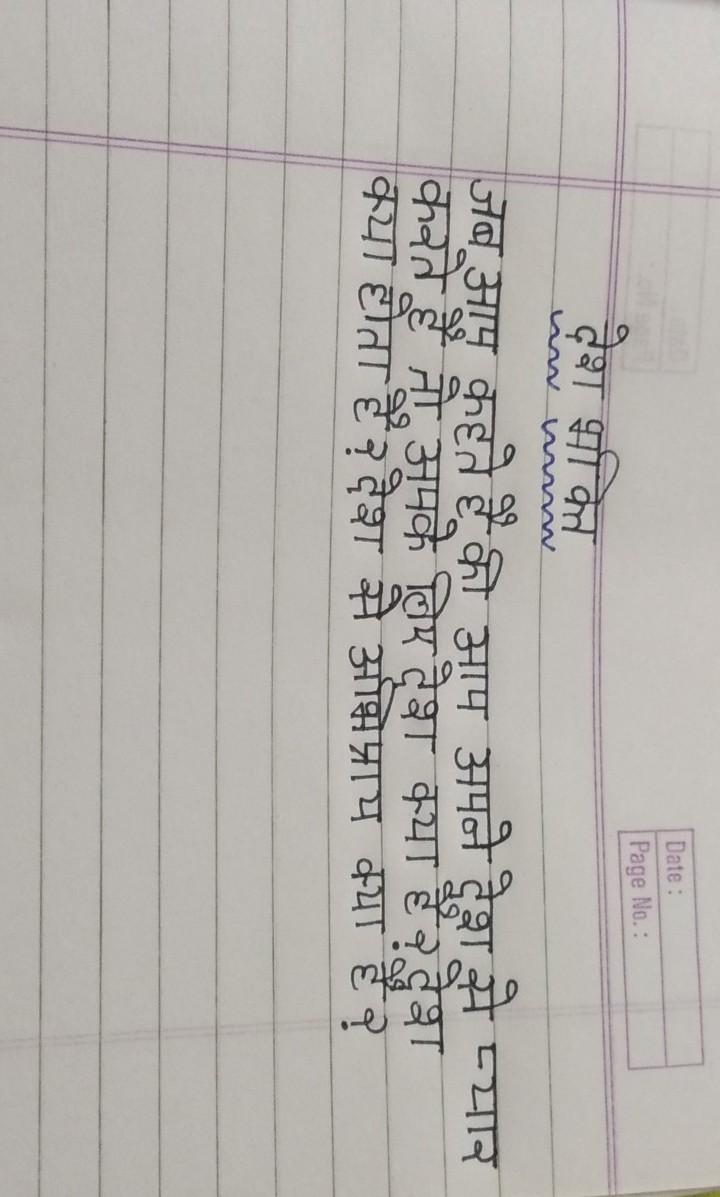 Date :
Page No. :
देश भक्ति
जब आप कहते है की आप अपने देश से प्यार
करते है तो अपके लिए देश क्या है? देश
क्या होता है? देश से अभिप्राय क्या है?